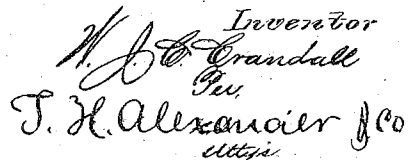 Inventor
W. J. C. Crandall
Per.
T. H. Alexander & Co
Attys.